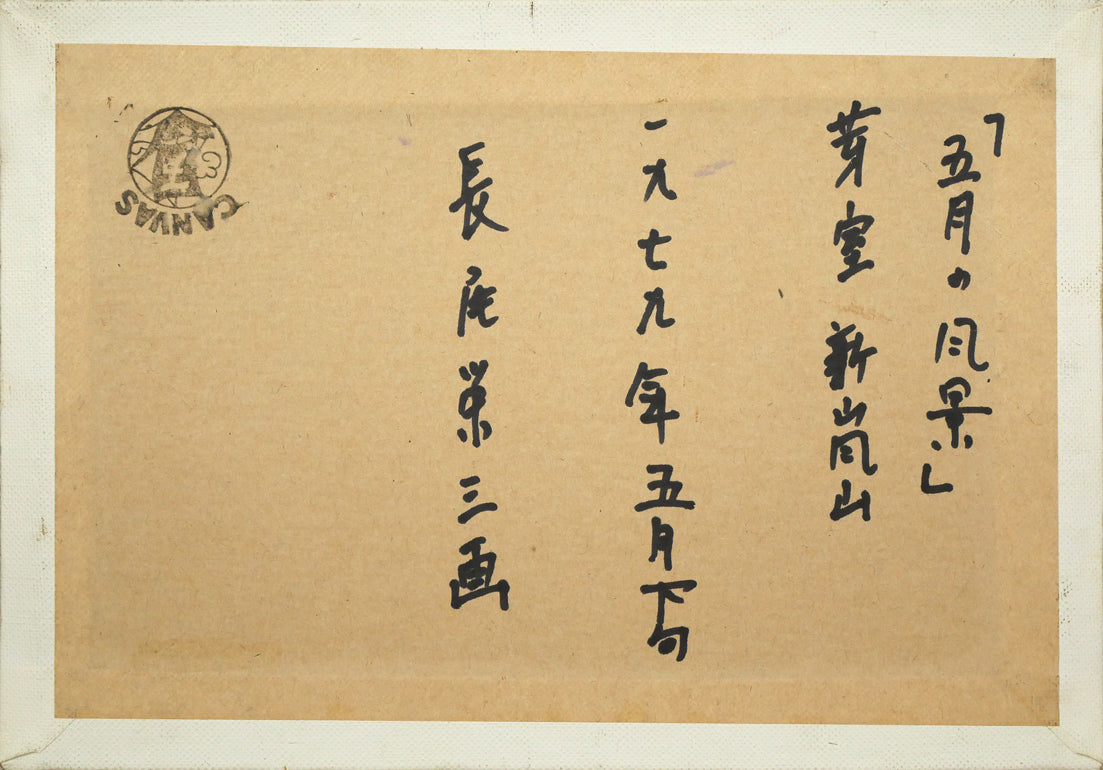 「五月の風景」
芽室 新嵐山
一九七九年五月下旬
長尾栄三画
CANVAS